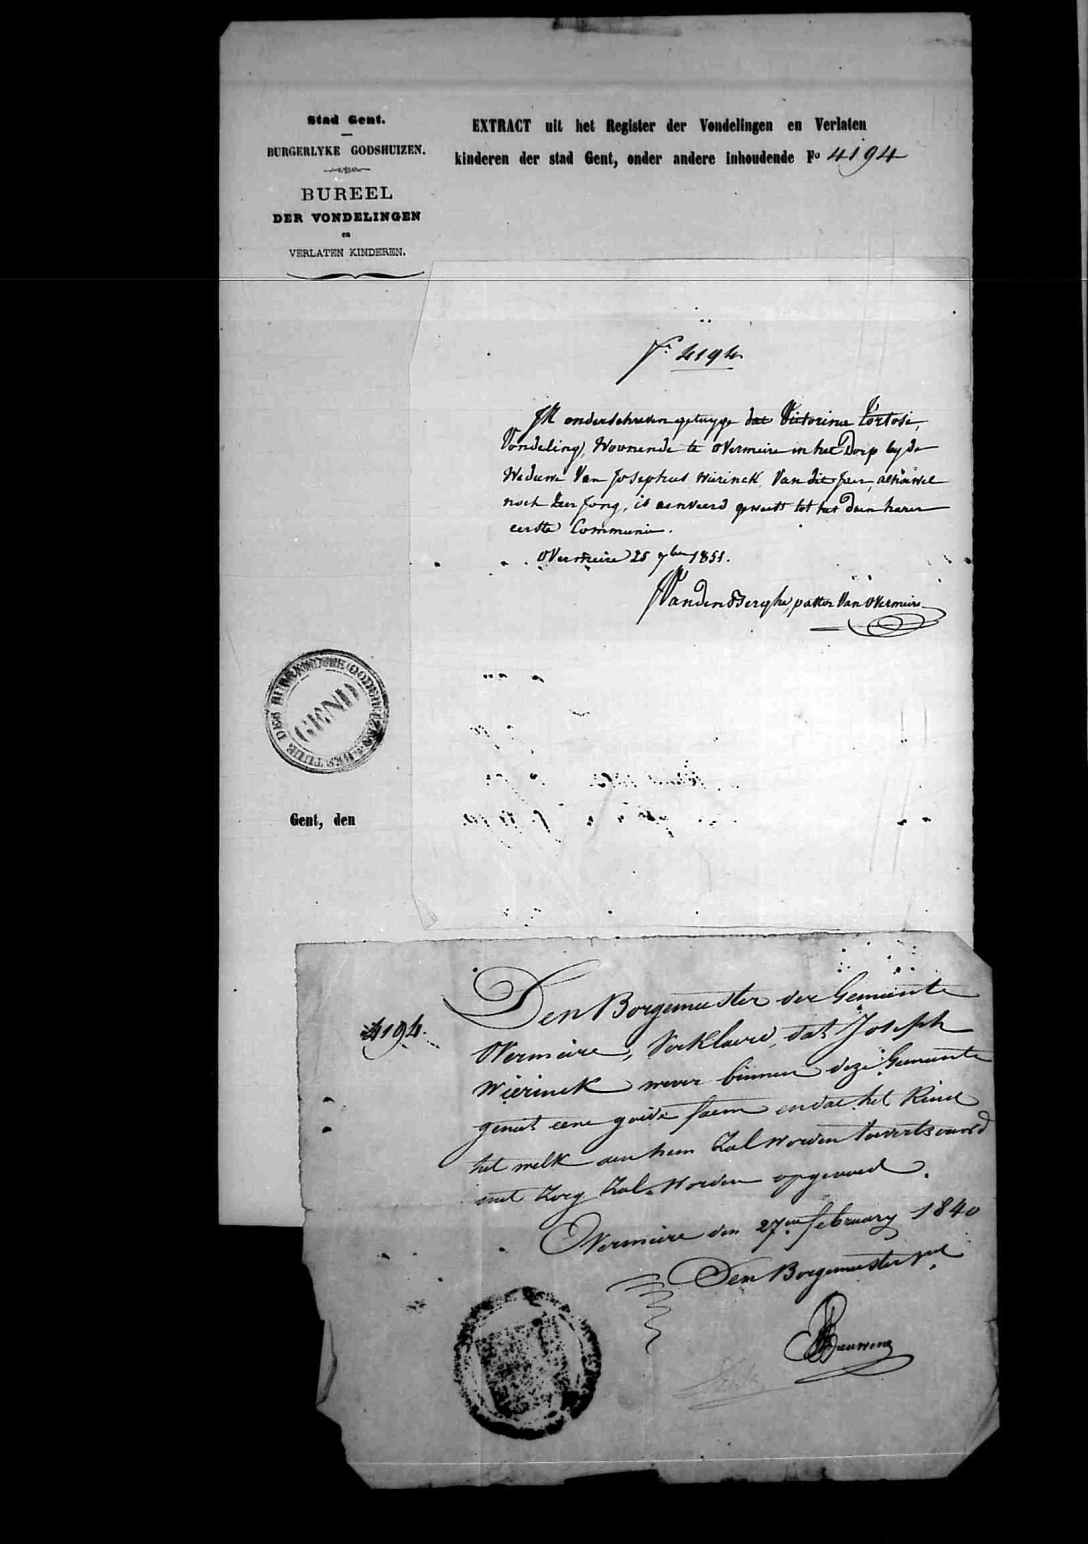 Stad Gent.
BURGERLYKE GODSHUIZEN.
BUREEL
DER VONDELINGEN
en
VERLATEN KINDEREN.
EXTRACT uit het Register der Vondelingen en Verlaten
kinderen der stad Gent, onder andere inhoudende Fo 4194
Fo 4194
Ik onderschreven getuyge dat Victorina Tortosi,
Vondeling, Woonende te Overmeire in het Dorp by de
Weduwe Van Josephus Wierinck, Van dit Jaer, alhoewel
noch Zeer Jong, is aenveerd geweest tot het doen harer
eerste Communie.
Overmeire 25 7ber 1851.
VandenBerghe, pastor Van Overmeire
GEND
Gent, den
4194.
Den Borgemeester der Gemeente
Overmeire, Verklaerd, dat Joseph
Wierinck wever binnen deze Gemeente
geniet eene goede faem en dat het Kind
het welk aen hem Zal worden toevertrouwd
met Zorg Zal Worden opgevoed.
Overmeire den 27en february 1840
Den Borgemeester